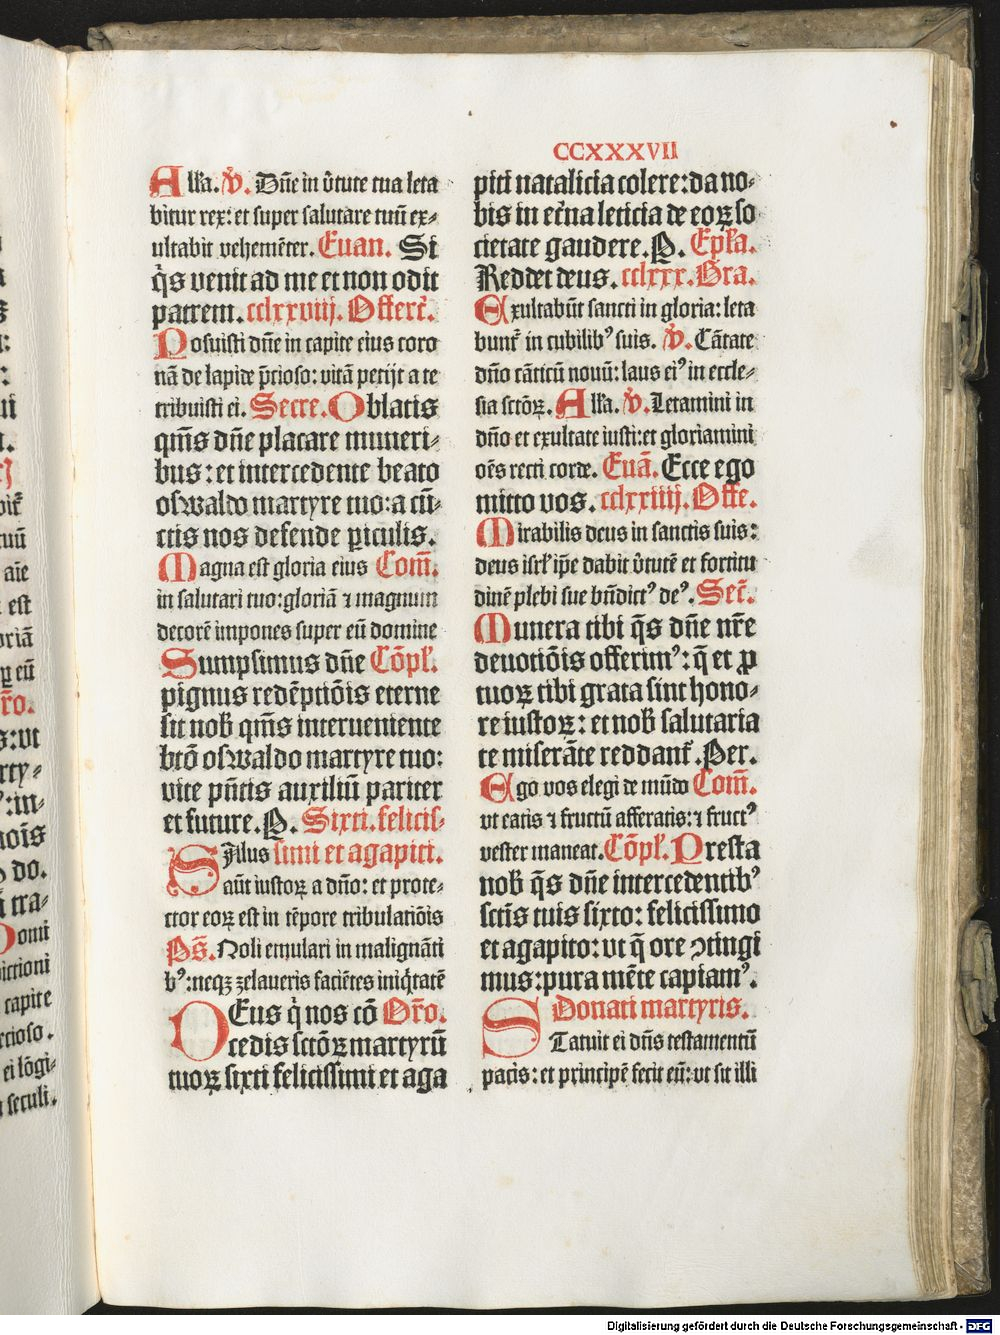 CCXXXVII
Alła. v̊. Dn̄e in v̄tute tua leta
bitur rex: et super salutare tuū ex⸗
ultabit vehemēter. Euan. Si
q̇s venit ad me et non odit
patrem. cclxxviij. Offerē.
Posuisti dn̄e in capite eius coro
nā de lapide p̄cioso: vitā petijt a te
tribuisti ei. Secre. Oblatis
qm̄s dn̄e placare muneri⸗
bus: et intercedente beato
oswaldo martyre tuo: a cū⸗
ctis nos defende ꝑiculis.
Magna est gloria eius Com̄.
in salutari tuo: gloriā ⁊ magnum
decorē impones super eū domine
Sumpsimus dn̄e Cōpł.
pignus redēptiōis eterne
sit nob̄ qm̄s interueniente
btō oswaldo martyre tuo:
vite pn̄tis auxiliū pariter
et future. P. Sixti. felicis⸗
Salus simi et agapiti.
aūt iustoꝝ a dn̄o: et prote⸗
ctor eoꝝ est in tēpore tribulatiōis
Ps̄. Noli emulari in malignāti
bꝰ: neqꝫ zelaueris faciētes iniq̇tatē
DEus q̇ nos cō Or̄o.
cedis sctōꝝ martyrū
tuoꝝ sixti felicissimi et aga
piti natalicia colere: da no⸗
bis in et̄na leticia de eoꝝ so
cietate gaudere. P. Epła.
Reddet deus. cclxxx. Gra.
Exultabūt sancti in gloria: leta
bunt̄ in cubilibꝰ suis. v̊. Cātate
dn̄o cāticū nouū: laus eiꝰ in eccle⸗
sia sctōꝝ. Alła. v̊. Letamini in
dn̄o et exultate iusti: et gloriamini
oēs recti corde. Euā. Ecce ego
mitto vos. cclxxiiij. Offe.
Mirabilis deus in sanctis suis:
deus isrł ip̄e dabit v̄tutē et fortitu
dinē plebi sue bn̄dictꝰ deꝰ. Sec̄.
Munera tibi q̄s dn̄e nr̄e
deuotiōis offerimꝰ: q̄ et ꝓ
tuoꝝ tibi grata sint hono⸗
re iustoꝝ: et nob̄ salutaria
te miserāte reddant̄. Per.
Ego vos elegi de mūdo Com̄.
vt eatis ⁊ fructū afferatis: ⁊ fructꝰ
vester maneat. Cōpł. Presta
nob̄ q̄s dn̄e intercedentibꝰ
sctīs tuis sixto: felicissimo
et agapito: vt q̄ ore ꝯtingi
mus: pura mēte capiamꝰ.
Donati martyris.
STatuit ei dn̄s testamentū
pacis: et principē fecit eū: vt sit illi
Digitalisierung gefördert durch die Deutsche Forschungsgemeinschaft - DFG